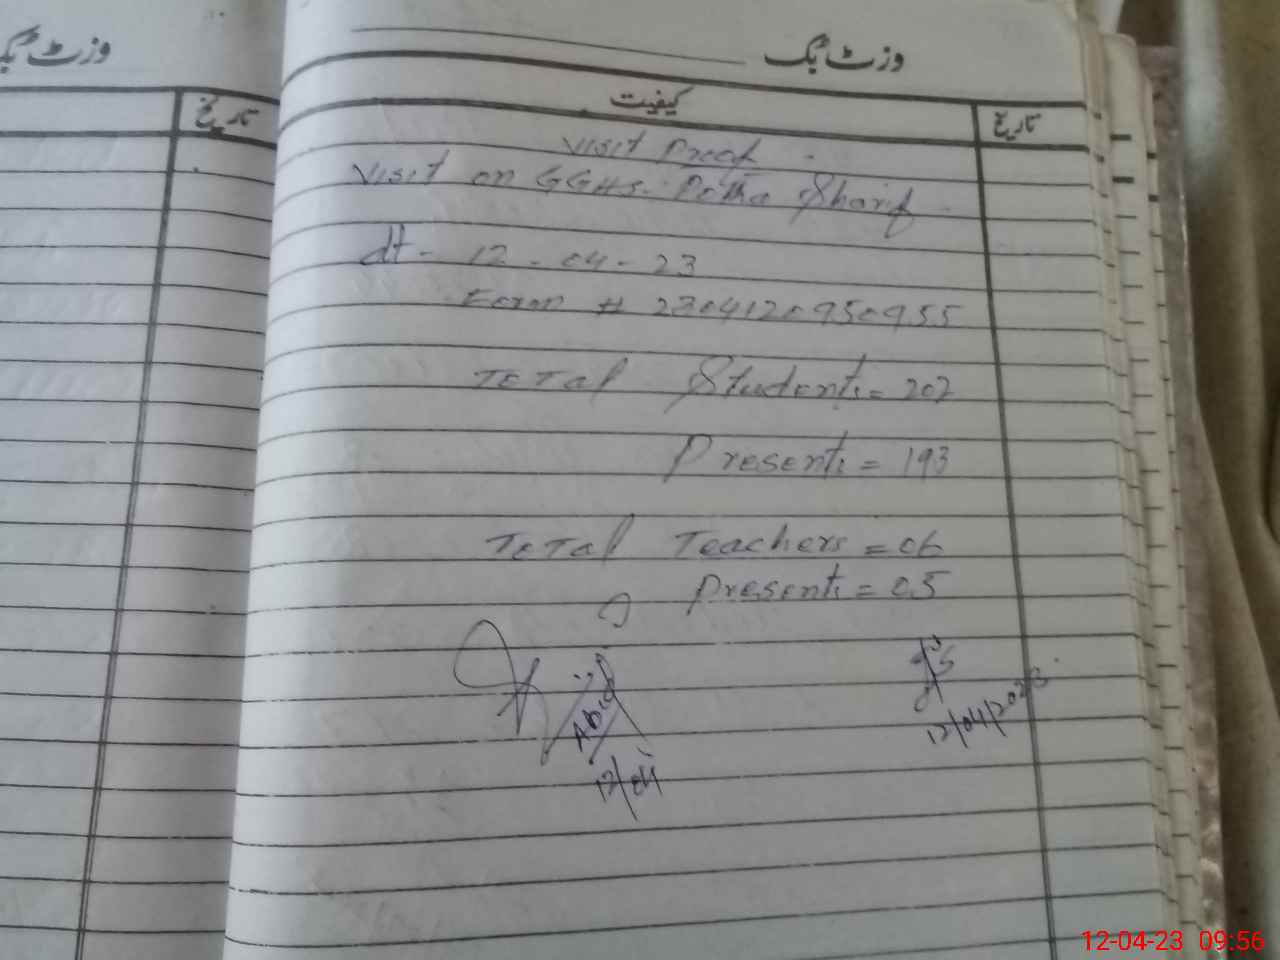 وزٹ بک
وزٹ بک
تاریخ
کیفیت
تاریخ
Visit Proof
Visit on GGHS. Potha Sharif
dt - 12 - 04 - 23
Form # 2304120950955
Total Students = 202
Presents = 193
Total Teachers = 06
Presents = 05
Abid
12/04
12/04/2023
12-04-23 09:56